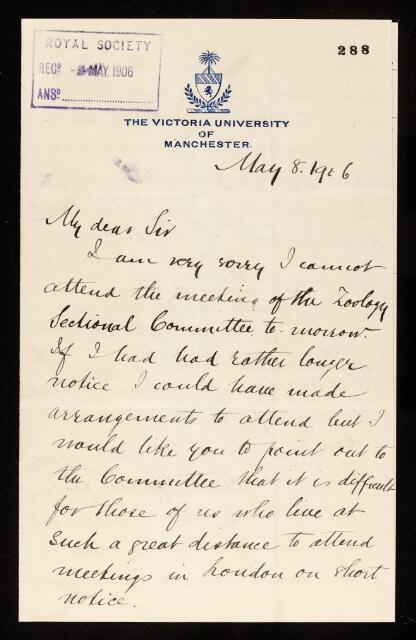 ROYAL SOCIETY
REGD - 9 MAY. 1906
ANSD.
288
THE VICTORIA UNIVERSITY
OF
MANCHESTER.
May 8. 1906
My dear Sir
I am very sorry I cannot
attend the meeting of the Zoology
Sectional Committee to-morrow.
If I had had rather longer
notice I could have made
arrangements to attend but I
would like you to point out to
the Committee that it is difficult
for those of us who live at
such a great distance to attend
meetings in London on short
notice.